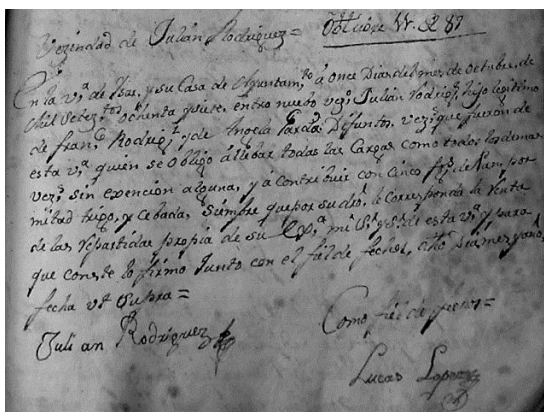 Vezindad de Julián Rodriguez = Octubre 11. de 87
En la vª. de Isar, y su Casa de Ayuntamto. á once Dias del mes, de Octubre, de
Mil Setectos. ochenta y siete, entro nuebo vezº. Julián Rodrigz. hijo legitimo
de franco. Rodrigz. y de Angela Garcia Difuntos, vezs. que fueron de
esta vª. quien se obligó á llebar todas las Cargas como todos los demas
vezs. sin exención alguna, y á contribuir con Cinco fs. de Pan, por
mitad trigo, y Cebada, Siempre que por su dro. le corresponda la Venta
de las repartidas propia de su Exª. mi Sª. de esta vª. y para
que conste lo firmó Junto con el fiel de fechos, dho Dia mes y año,
fecha vt Supra =
Julian Rodriguez
Como fiel de fechos =
Lucas Lopez